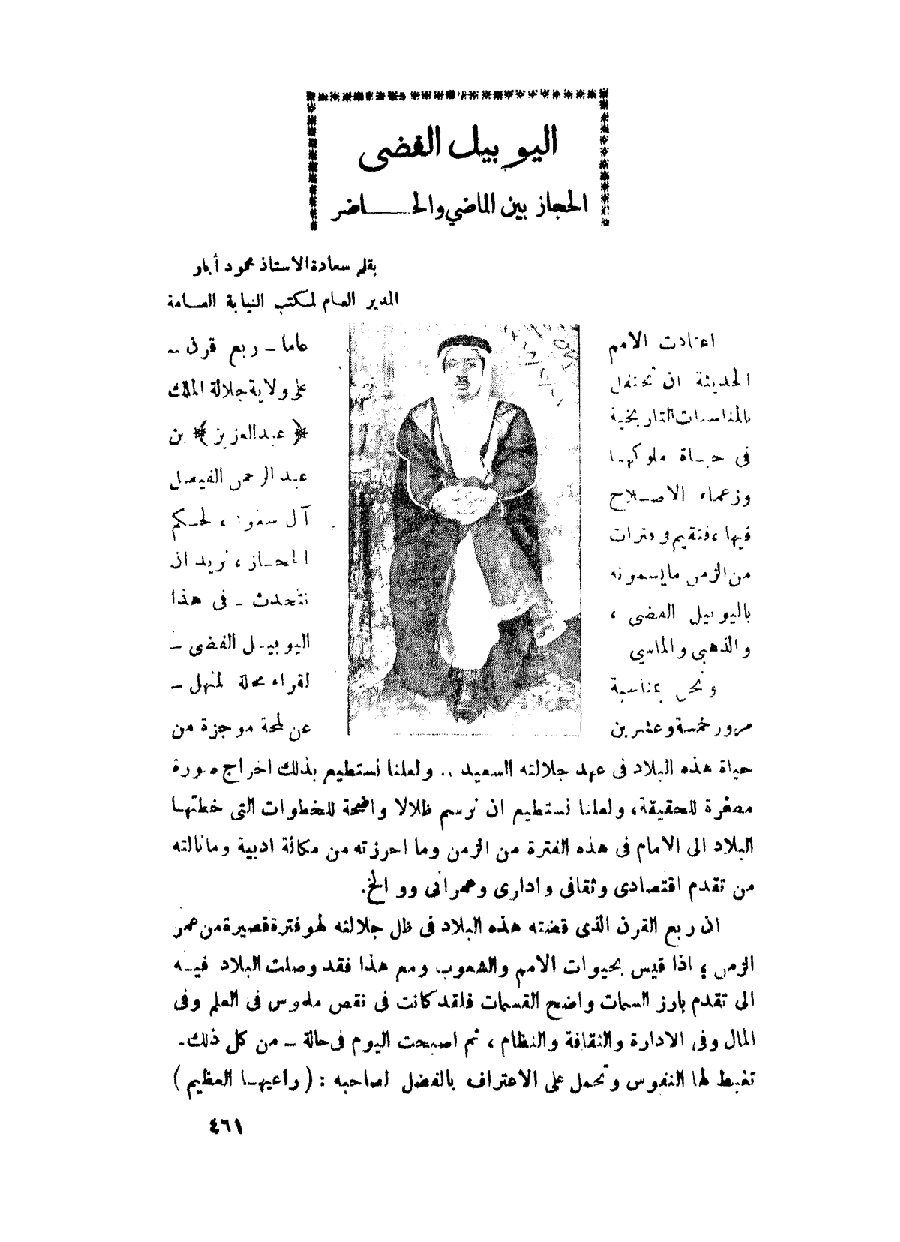 اليوبيل الفضى
الحجاز بين الماضي والحـــاضر
بقلم سعادة الاستاذ محمود أبار
المدير العام لمكتب النيابة العامة
اعتادت الامم
الحديثة ان تحتفل
بالمناسبات التاريخية
فى حياة ملوكها
وزعماء الاصلاح
فيها، فتقيم فترات
من الزمن مايسمونه
باليوبيل الفضى ،
والذهبي والماسي
ونحن بمناسبة
مرور خمسة وعشرين
عاما ـ ربع قرن ..
على ولاية جلالة الملك
﴿ عبدالعزيز ﴾ بن
عبد الرحمن الفيصل
آل سعود ، لحكم
الحجاز ، نريد ان
نتحدث ـ فى هذا
اليوبيل الفضى ـ
لقراء مجلة المنهل ـ
عن لمحة موجزة من
حياة هذه البلاد فى عهد جلالته السعيد .. ولعلنا نستطيع بذلك اخراج صورة
مصغرة للحقيقة، ولعلنا نستطيع ان نرسم ظلالا واضحة للخطوات التى خطتها
البلاد الى الامام فى هذه الفترة من الزمن وما احرزته من مكانة ادبية ومانالته
من تقدم اقتصادى وثقافى وادارى وعمرانى وو الخ.
ان ربع القرن الذى قضته هذه البلاد فى ظل جلالته لهو فترة قصيرة من عمر
الزمن ؛ اذا قيس بحيوات الامم والشعوب ومع هذا فقد وصلت البلاد فيه
الى تقدم بارز السمات واضح القسمات فلقد كانت فى نقص ملموس فى العلم وفى
المال وفى الادارة والثقافة والنظام ، ثم اصبحت اليوم فى حالة ـ من كل ذلك ـ
تغبط لها النفوس وتحمل على الاعتراف بالفضل لصاحبه : ( راعيها العظيم )
٤٦١